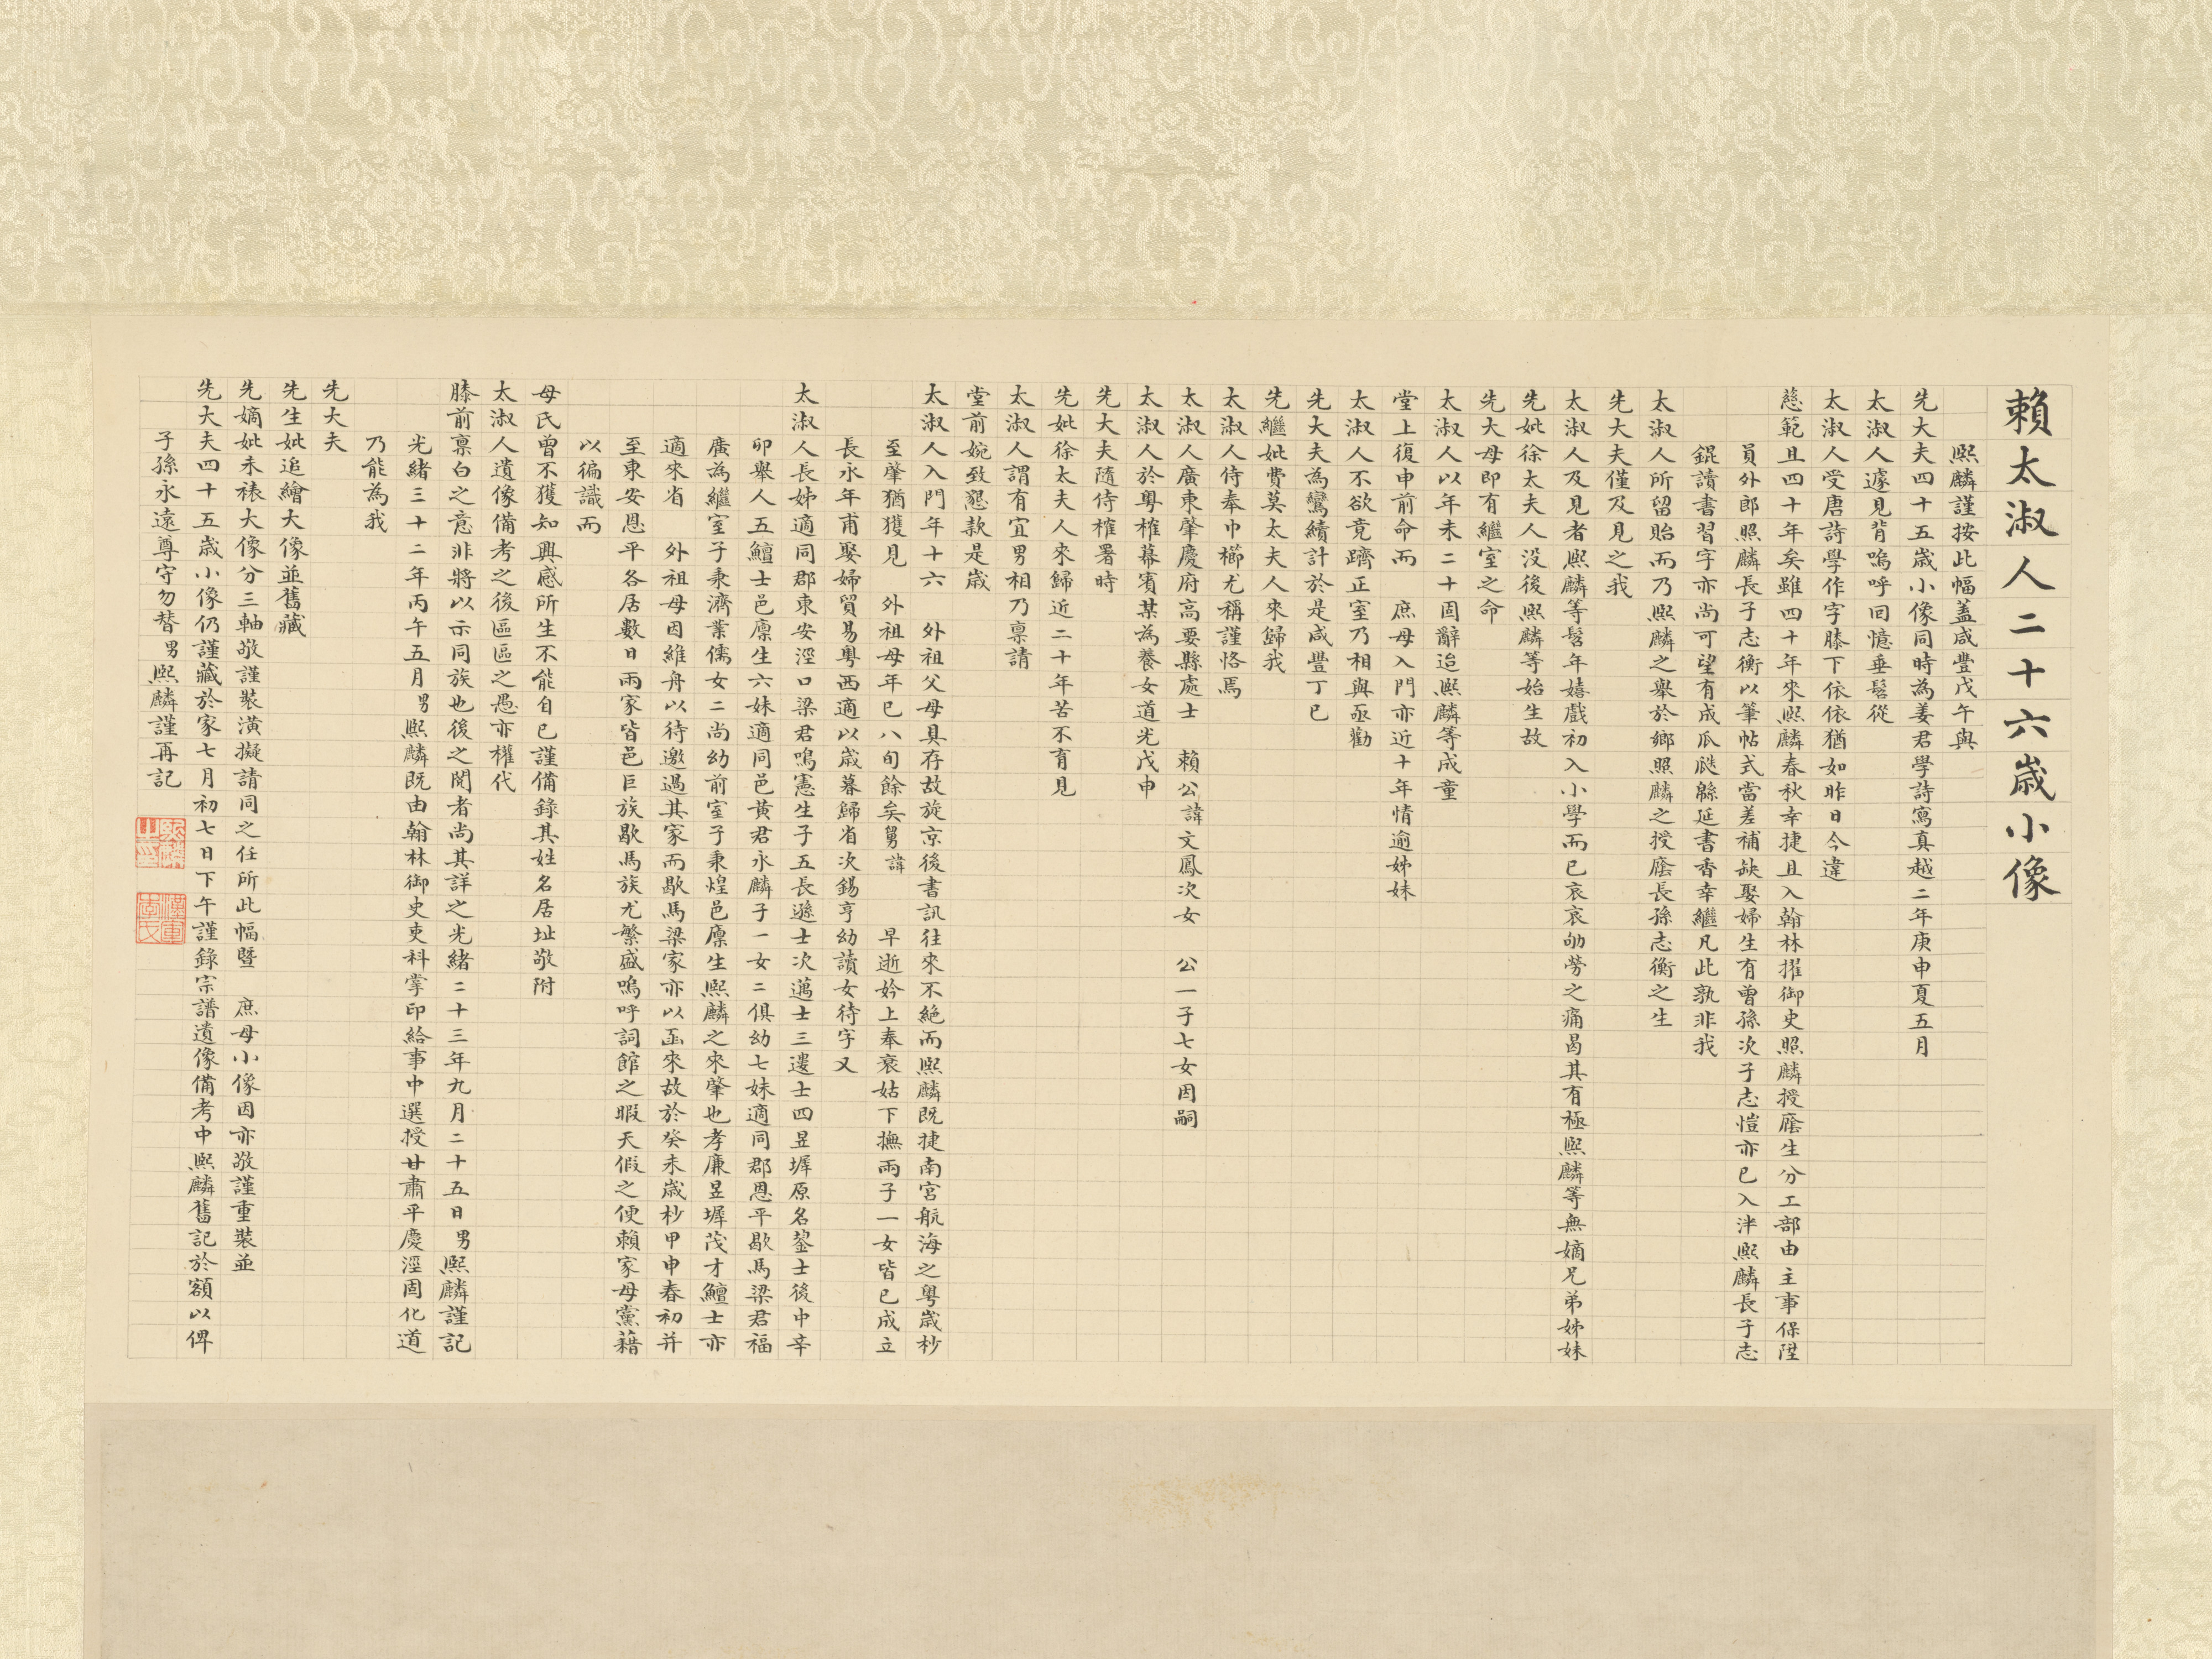 賴太淑人二十六歲小像
熙麟謹按此幅蓋咸豐戊午與
先大夫四十五歲小像同時為姜君學詩寫真越二年庚申夏五月
太淑人遽見背嗚呼回憶垂髫從
太淑人受唐詩學作字膝下依依猶如昨日今違
慈範且四十年矣雖四十年來熙麟春秋幸捷且入翰林擢御史照麟授廕生分工部由主事保陞
員外郎照麟長子志衡以筆帖式當差補缺娶婦生有曾孫次子志愷亦已入泮熙麟長子志
錕讀書習字亦尚可望有成瓜瓞緜延書香幸繼凡此孰非我
太淑人所留貽而乃熙麟之舉於鄉照麟之授廕長孫志衡之生
先大夫僅及見之我
太淑人及見者熙麟等髫年嬉戲初入小學而已哀哀劬勞之痛曷其有極熙麟等無嫡兄弟姊妹
先妣徐太夫人沒後熙麟等始生故
先大母即有繼室之命
太淑人以年未二十固辭迨熙麟等成童
堂上復申前命而 庶母入門亦近十年情逾姊妹
太淑人不欲竟躋正室乃相與亟勸
先大夫為鸞續計於是咸豐丁巳
先繼妣費莫太夫人來歸我
太淑人侍奉巾櫛尤稱謹恪焉
太淑人廣東肇慶府高要縣處士 賴公諱文鳳次女 公一子七女因嗣
太淑人於粵榷幕賓某為養女道光戊申
先大夫隨侍榷署時
先妣徐太夫人來歸近二十年苦不育見
太淑人謂有宜男相乃稟請
堂前婉致懇款是歲
太淑人入門年十六 外祖父母具存故旋京後書訊往來不絕而熙麟既捷南宮航海之粵歲杪
至肇猶獲見 外祖母年已八旬餘矣舅諱 早逝妗上奉衰姑下撫兩子一女皆已成立
長永年甫娶婦貿易粵西適以歲暮歸省次錫亨幼讀女待字又
太淑人長姊適同郡東安涇口梁君鳴憲生子五長遜士次邁士三遱士四昱墀原名鋆士後中辛
卯舉人五鱣士邑廩生六妹適同邑黃君永麟子一女二俱幼七妹適同郡恩平歇馬梁君福
廣為繼室子秉濟業儒女二尚幼前室子秉煌邑廩生熙麟之來肇也孝廉昱墀茂才鱣士亦
適來省 外祖母因維舟以待邀過其家而歇馬梁家亦以函來故於癸未歲杪甲申春初并
至東安恩平各居數日兩家皆邑巨族歇馬族尤繁盛嗚呼詞館之暇天假之便賴家母黨藉
以徧識而
母氏曾不獲知興感所生不能自已謹備錄其姓名居址敬附
太淑人遺像備考之後區區之愚亦權代
膝前稟白之意非將以示同族也後之閱者尚其詳之光緒二十三年九月二十五日男熙麟謹記
光緒三十二年丙午五月男熙麟既由翰林御史吏科掌印給事中選授甘肅平慶涇固化道
乃能為我
先大夫
先生妣追繪大像並舊藏
先嫡妣未裱大像分三軸敬謹裝潢擬請同之任所此幅暨 庶母小像因亦敬謹重裝並
先大夫四十五歲小像仍謹藏於家七月初七日下午謹錄宗譜遺像備考中熙麟舊記於額以俾
子孫永遠尊守勿替男熙麟謹再記
熙麟之印
漢軍李氏